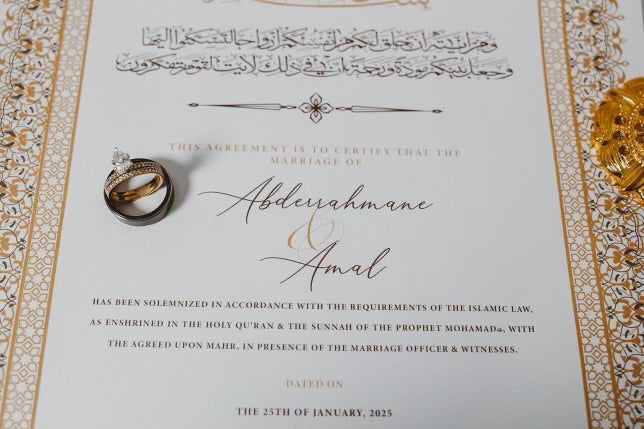 ومن آياته أن خلق لكم من أنفسكم أزواجا لتسكنوا إليها
وجعل بينكم مودة ورحمة إن في ذلك لآيات لقوم يتفكرون
THIS AGREEMENT IS TO CERTIFY THAT THE
MARRIAGE OF
Abderrahmane
&
Amal
HAS BEEN SOLEMNIZED IN ACCORDANCE WITH THE REQUIREMENTS OF THE ISLAMIC LAW,
AS ENSHRINED IN THE HOLY QU'RAN & THE SUNNAH OF THE PROPHET MOHAMADﷺ, WITH
THE AGREED UPON MAHR, IN PRESENCE OF THE MARRIAGE OFFICER & WITNESSES.
DATED ON
THE 25TH OF JANUARY, 2025